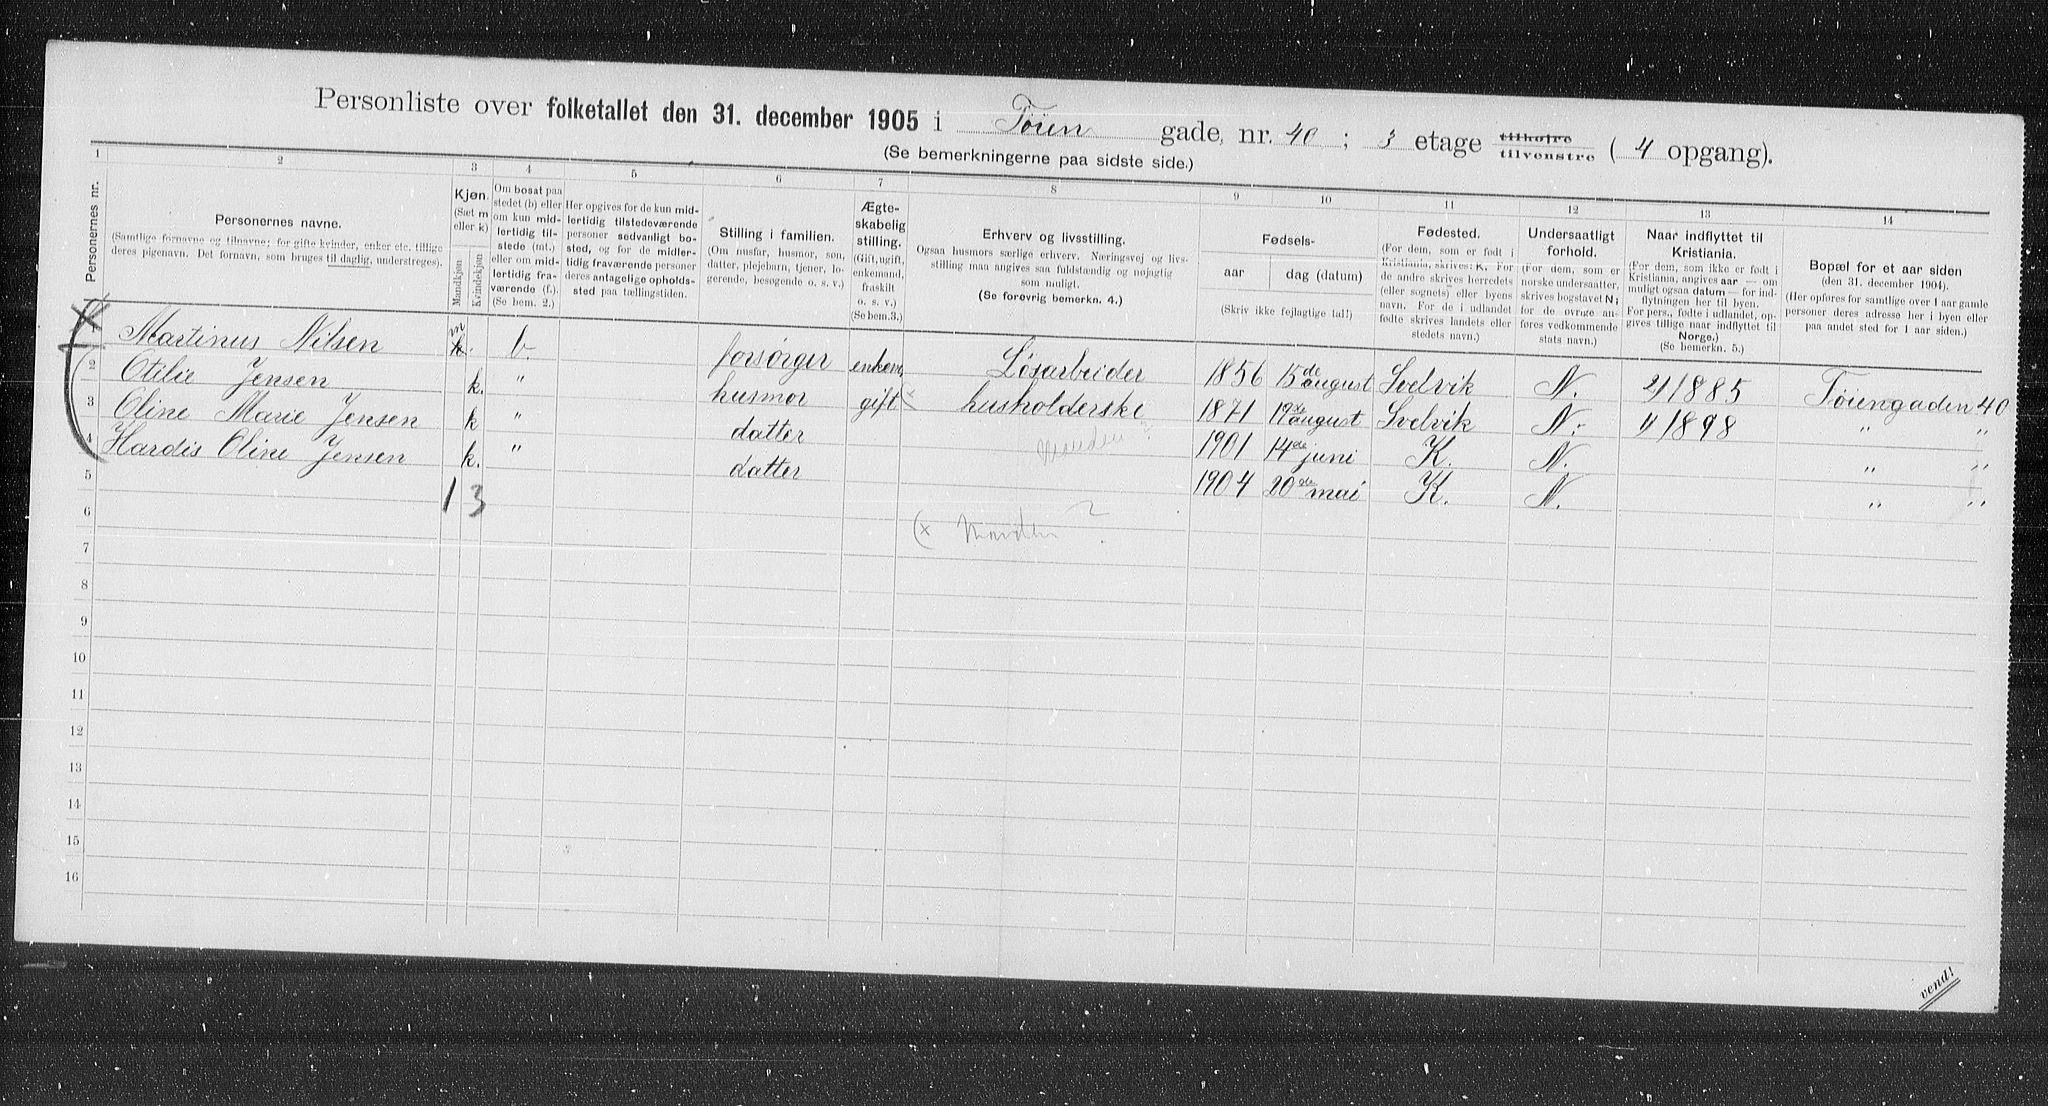 Personliste over folketallet den 31. december 1905 i Tøien gade, nr. 40 ; 3 etage tilhøjre tilvenstre ( 4 opgang).
(Se bemerkningerne paa sidste side.)
1 2 3 4 5 6 7 8 9 10 11 12 13 14
Personernes nr.
Personernes navne.
(Samtlige fornavne og tilnavne; for gifte kvinder, enker etc. tillige
deres pigenavn. Det fornavn, som bruges til daglig, understreges).
Kjøn.
(Sæt m
eller k)
Mandkjøn
Kvindekjøn
Om bosat paa
stedet (b) eller
om kun mid-
lertidig til-
stede (mt.)
eller om mid-
lertidig fra-
værende (f.).
(Se bem. 2.)
Her opgives for de kun mid-
lertidig tilstedeværende
personer sedvanligt bo-
sted, og for de midler-
tidig fraværende personer
deres antagelige opholds-
sted paa tællingstiden.
Stilling i familien.
(Om husfar, husmor, søn,
datter, plejebarn, tjener, lo-
gerende, besøgende o. s. v.)
Ægte-
skabelig
stilling.
(Gift, ugift,
enkemand,
fraskilt
o. s. v.)
(Se bem.3.)
Erhverv og livsstilling.
Ogsaa husmors særlige erhverv. Næringsvej og livs-
stilling maa angives saa fuldstændig og nøjagtig
som muligt.
(Se forøvrig bemerkn. 4.)
Fødsels-
aar
dag (datum)
(Skriv ikke fejlagtige tal!)
Fødested.
(For dem, som er født i
Kristiania, skrives: K. For
de andre skrives herredets
(eller sognets) eller byens
navn. For de i udlandet
fødte skrives landets eller
stedets navn.)
Undersaatligt
forhold.
(For dem, som er
norske undersaatter,
skrives bogstavet N;
for de øvrige an-
føres vedkommende
stats navn.)
Naar indflyttet til
Kristiania.
(For dem, som ikke er født i
Kristiania, angives aar — om
muligt ogsaa datum — for ind-
flytningen her til byen.
For pers., fødte i udlandet, op-
gives tillige naar indflyttet til
Norge.)
(Se bemerkn. 5.)
Bopæl for et aar siden
(den 31. december 1904).
(Her opføres for samtlige over 1 aar gamle
personer deres adresse her i byen eller
paa andet sted for 1 aar siden.)
Martinus Nilsen m b. forsørger enkem Løsarbeider 1856 15de august Svelvik N. 1885 Tøiengaden 40
2 Otilie Jensen k. " husmor gift husholderske 1871 19de august Svelvik N. 1898 " "
3 Oline Marie Jensen k " datter 1901 14de juni K. N. " "
4 Hardis Oline Jensen k. " datter 1904 20de mai K. N. " "
5 1 3
6 (x Manden ?
7
8
9
10
11
12
13
14
15
16
vend!